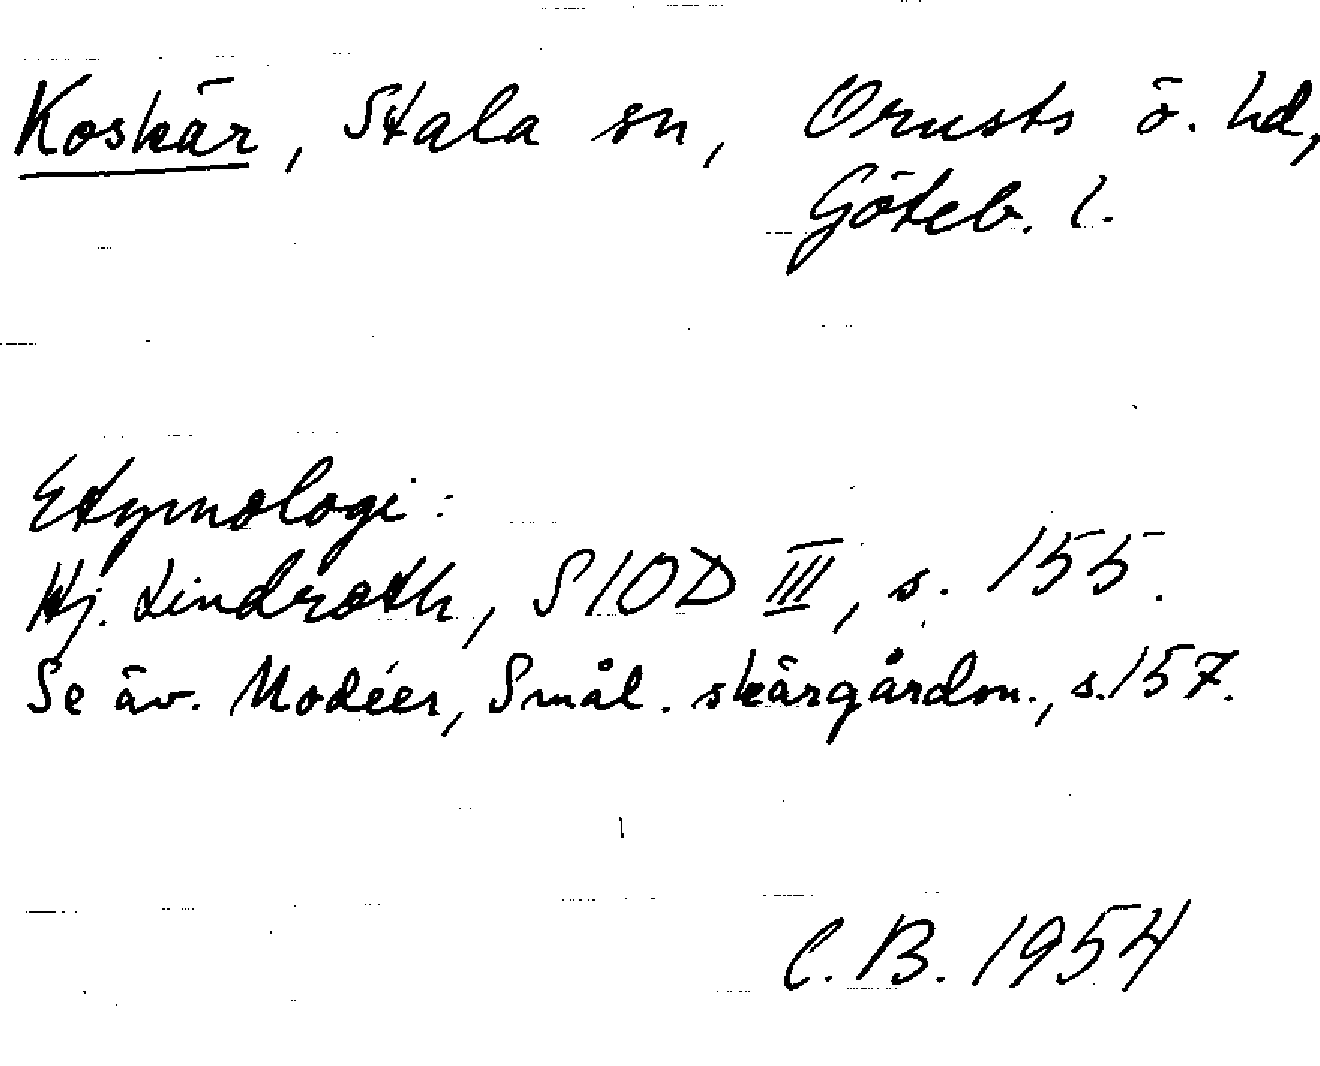 Koskär, Stala sn, Orusts ö. hd,
Göteb. l.
Etymologi:
Hj. Lindroth, SIOD III, s. 155.
Se äv. Modéer, Smål. skärgårdsn., s. 157.
C. B. 1954